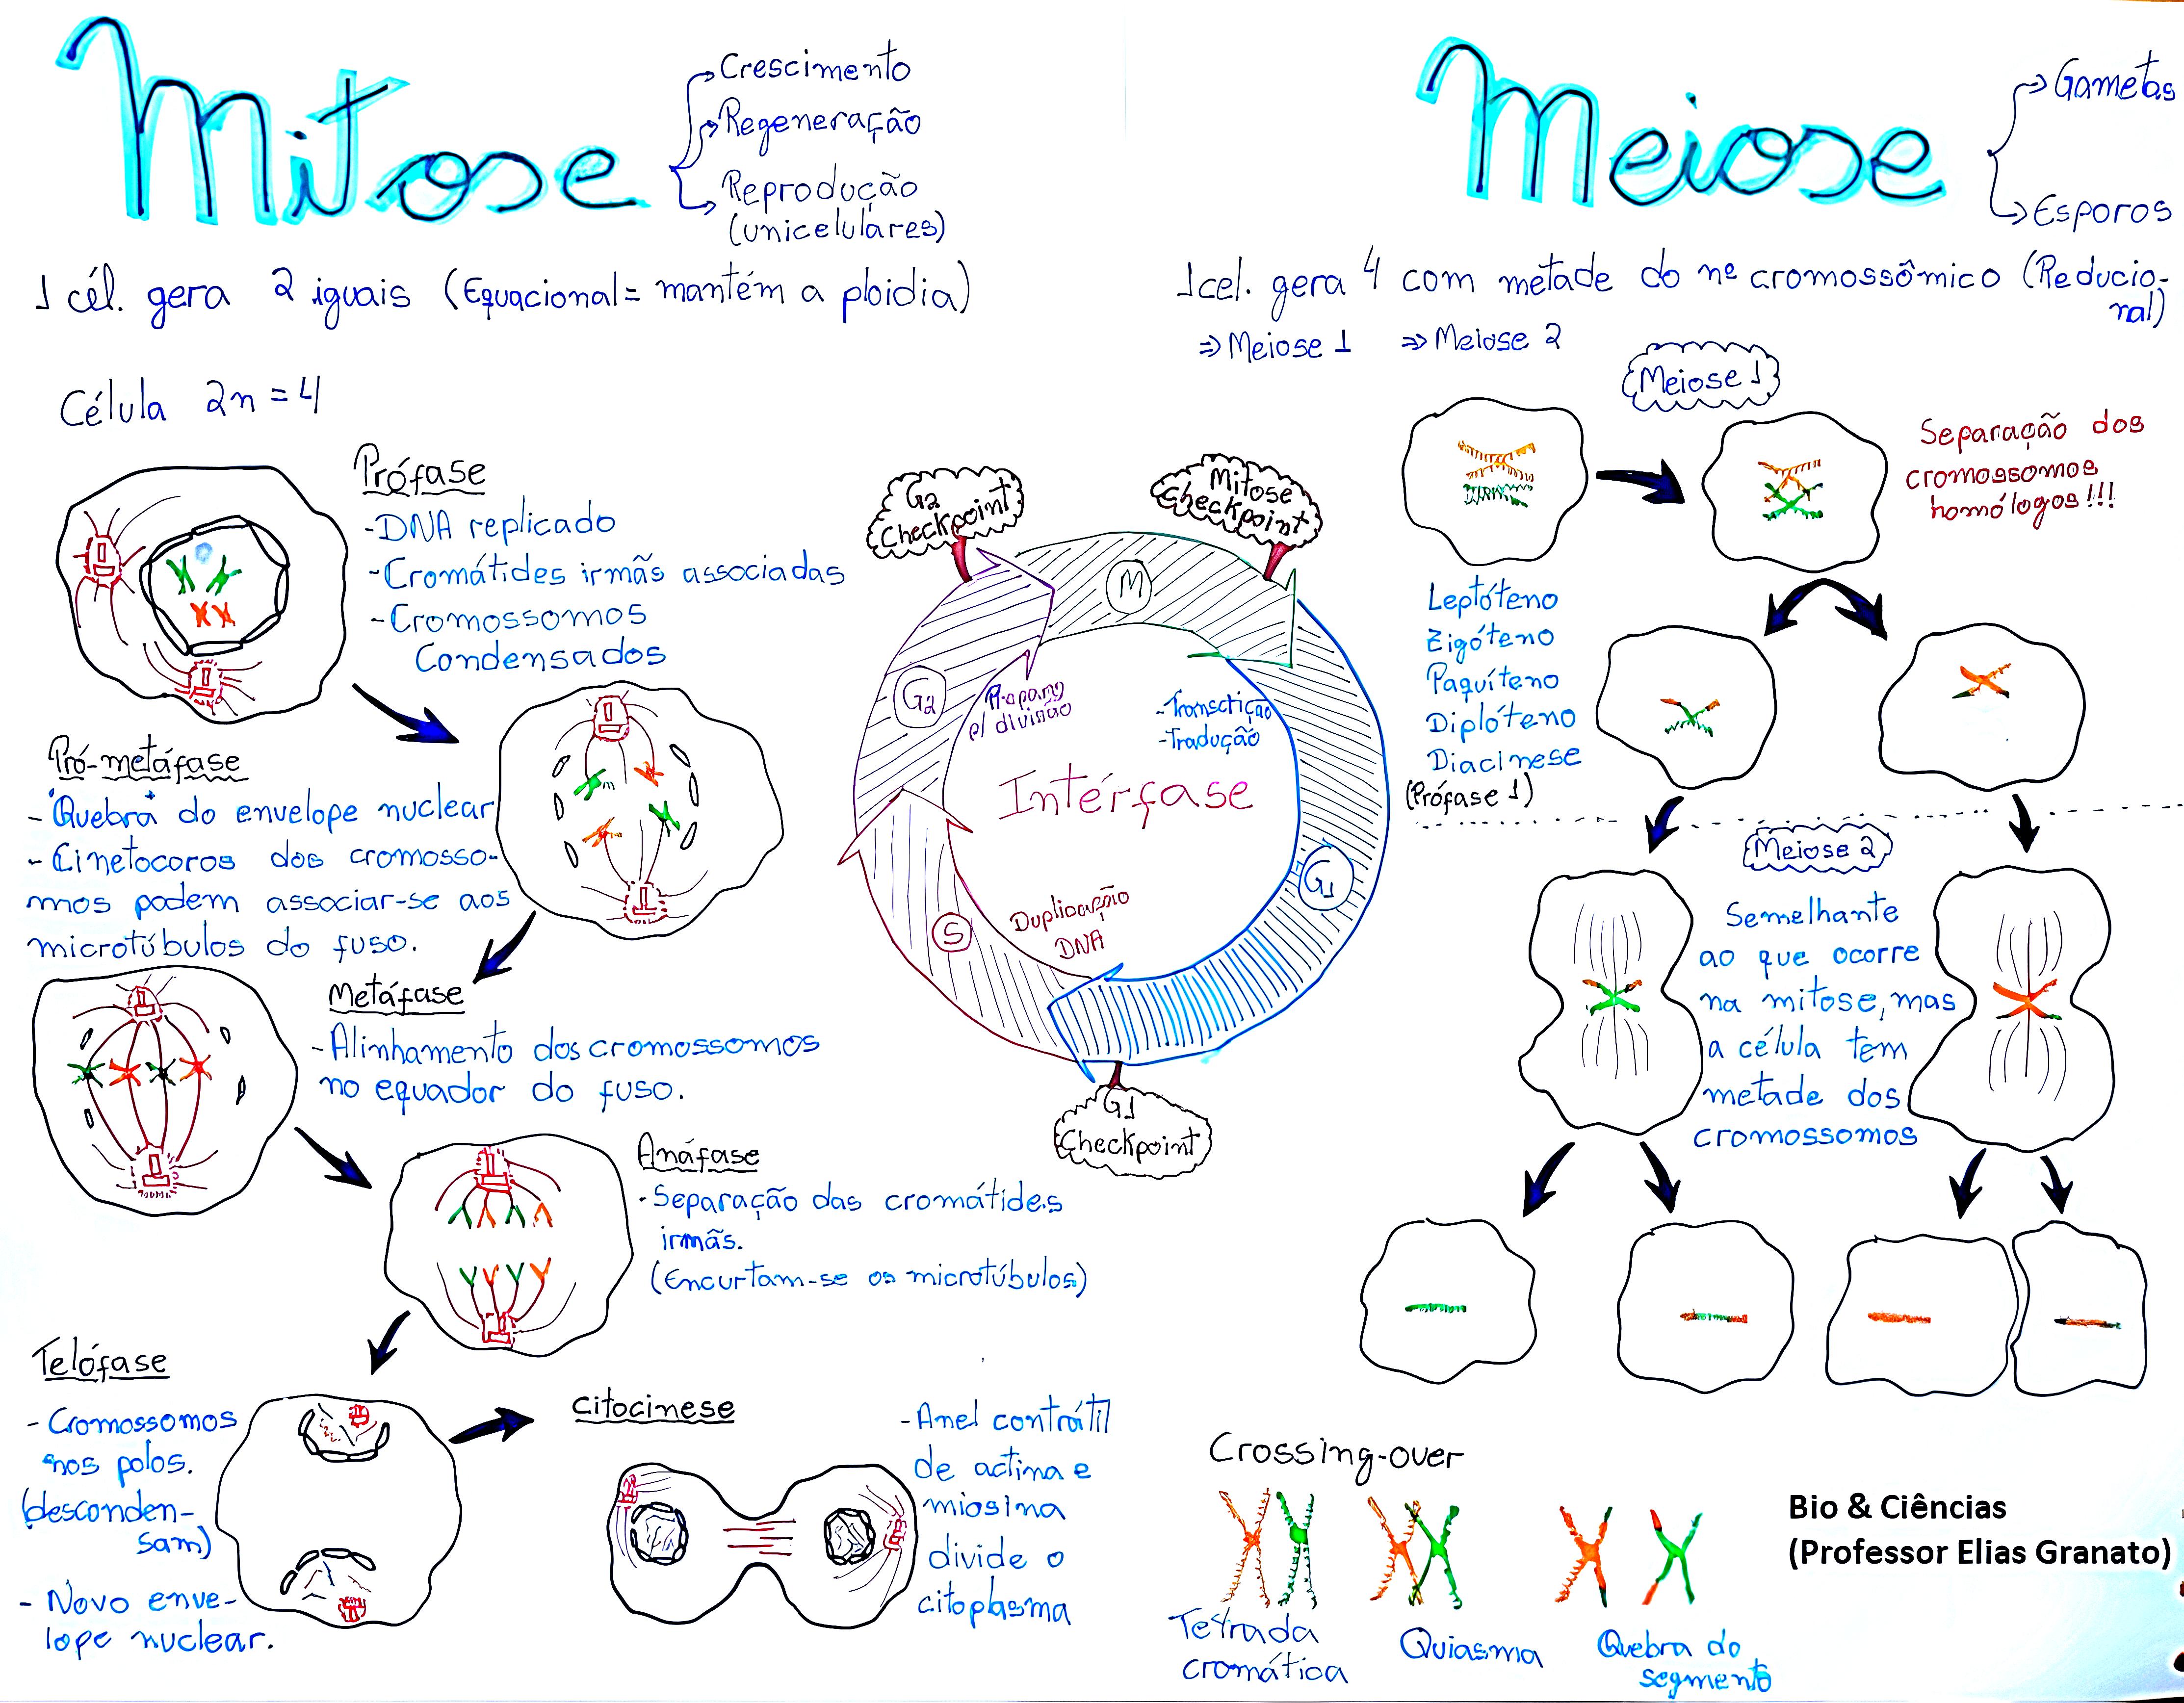 Mitose
Crescimento
Regeneração
Reprodução
(unicelulares)
1 cél. gera 2 iguais (Equacional = mantém a ploidia)
Célula 2n = 4
Prófase
-DNA replicado
-Cromátides irmãs associadas
-Cromossomos
Condensados
Pró-metáfase
- "Quebra" do envelope nuclear
- Cinetocoros dos cromosso-
mos podem associar-se aos
microtúbulos do fuso.
Metáfase
-Alinhamento dos cromossomos
no equador do fuso.
Anáfase
-Separação das cromátides
irmãs.
(Encurtam-se os microtúbulos)
Telófase
- Cromossomos
nos polos.
(desconden-
sam)
- Novo enve-
lope nuclear.
Citocinese
-Anel contrátil
de actina e
miosina
divide o
citoplasma
G2
Checkpoint
Mitose
Checkpoint
M
G2
p/ divisão
-Transcrição
-Tradução
Intérfase
G1
S
Duplicação
DNA
G1
Checkpoint
Meiose
Gametas
Esporos
1 cel. gera 4 com metade do nº cromossômico (Reducio-
nal)
⇒ Meiose 1 ⇒ Meiose 2
Meiose 1
Separação dos
cromossomos
homólogos!!!
Leptóteno
Zigóteno
Paquíteno
Diplóteno
Diacinese
(Prófase 1)
Meiose 2
Semelhante
ao que ocorre
na mitose, mas
a célula tem
metade dos
cromossomos
Crossing-over
Tetrada
cromática
Quiasma
Quebra do
segmento
Bio & Ciências
(Professor Elias Granato)